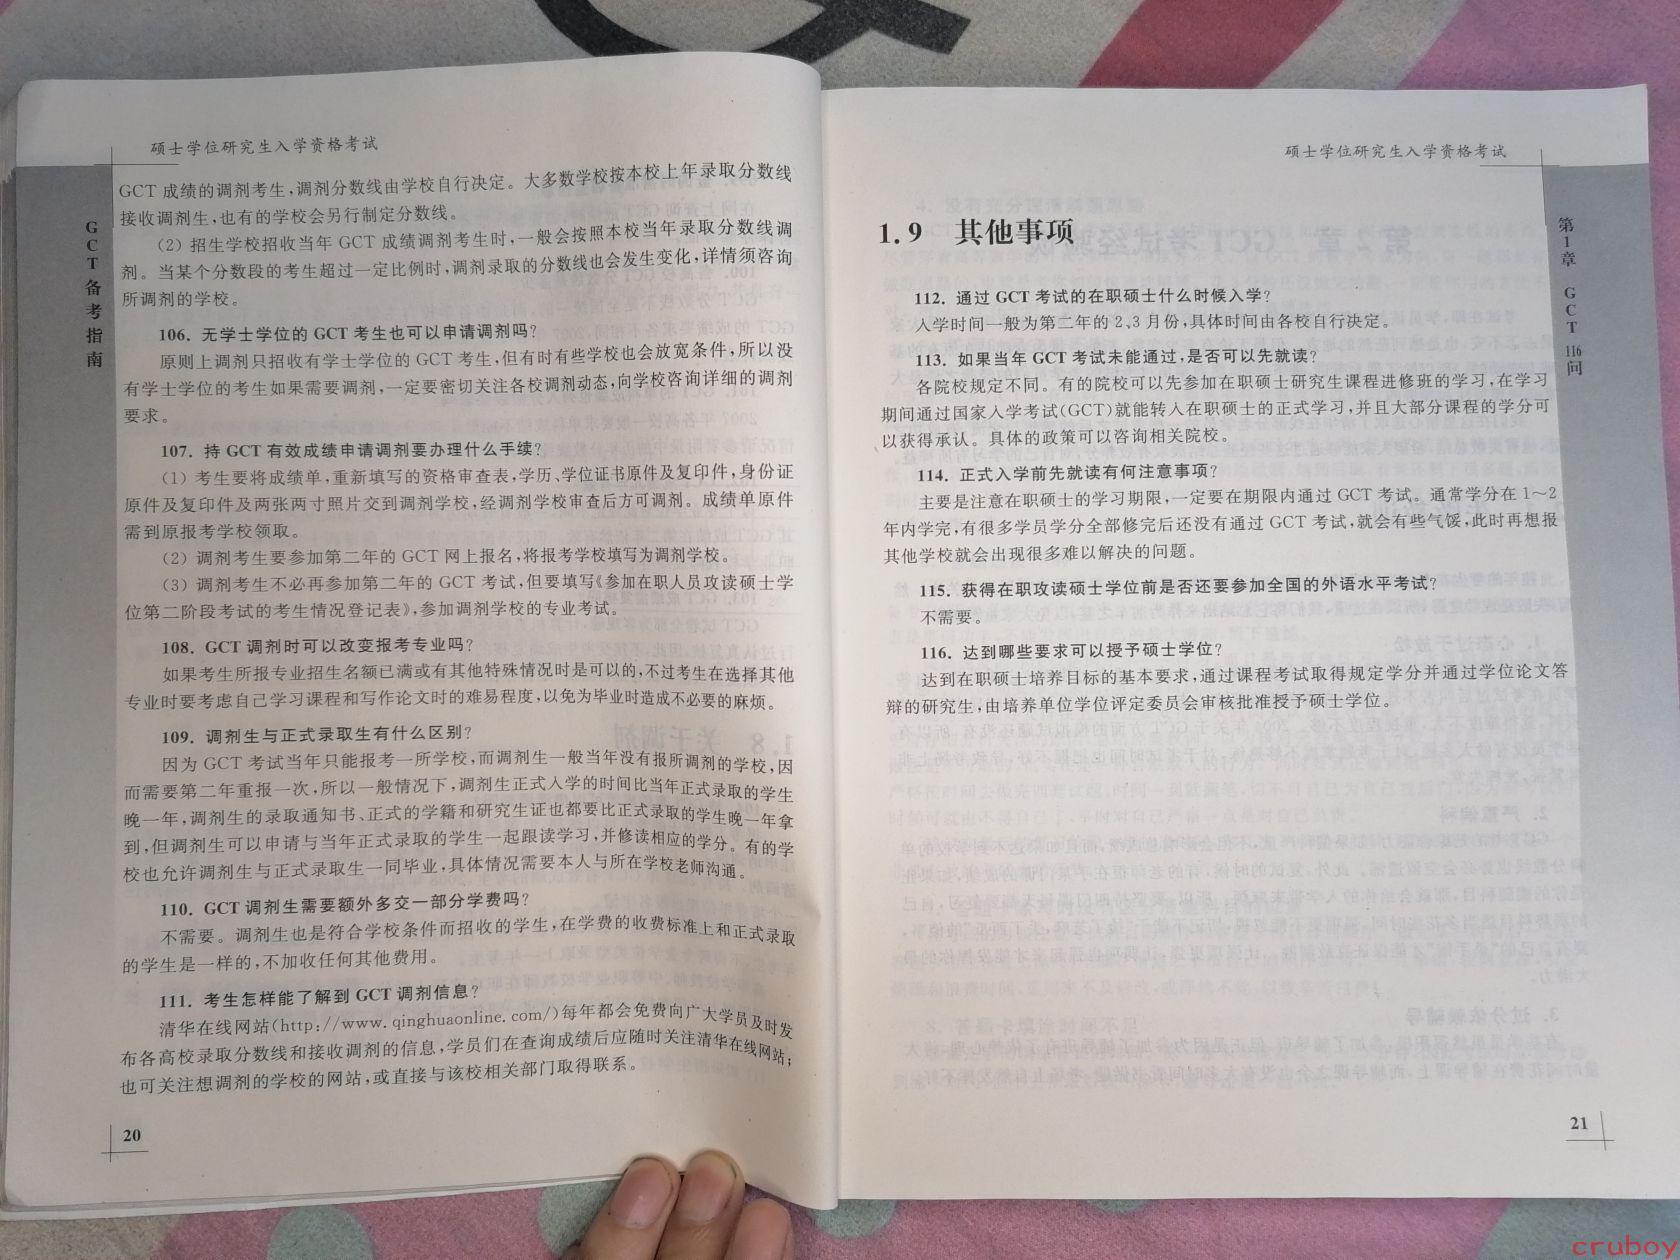 硕士学位研究生入学资格考试
GCT备考指南
GCT 成绩的调剂考生,调剂分数线由学校自行决定。大多数学校按本校上年录取分数线
接收调剂生,也有的学校会另行制定分数线。
(2) 招生学校招收当年 GCT 成绩调剂考生时,一般会按照本校当年录取分数线调
剂。当某个分数段的考生超过一定比例时,调剂录取的分数线也会发生变化,详情须咨询
所调剂的学校。
106. 无学士学位的 GCT 考生也可以申请调剂吗?
原则上调剂只招收有学士学位的 GCT 考生,但有时有些学校也会放宽条件,所以没
有学士学位的考生如果需要调剂,一定要密切关注各校调剂动态,向学校咨询详细的调剂
要求。
107. 持 GCT 有效成绩申请调剂要办理什么手续?
(1) 考生要将成绩单,重新填写的资格审查表,学历、学位证书原件及复印件,身份证
原件及复印件及两张两寸照片交到调剂学校,经调剂学校审查后方可调剂。成绩单原件
需到原报考学校领取。
(2) 调剂考生要参加第二年的 GCT 网上报名,将报考学校填写为调剂学校。
(3) 调剂考生不必再参加第二年的 GCT 考试,但要填写《参加在职人员攻读硕士学
位第二阶段考试的考生情况登记表》,参加调剂学校的专业考试。
108. GCT 调剂时可以改变报考专业吗?
如果考生所报专业招生名额已满或有其他特殊情况时是可以的,不过考生在选择其他
专业时要考虑自己学习课程和写作论文时的难易程度,以免为毕业时造成不必要的麻烦。
109. 调剂生与正式录取生有什么区别?
因为 GCT 考试当年只能报考一所学校,而调剂生一般当年没有报所调剂的学校,因
而需要第二年重报一次,所以一般情况下,调剂生正式入学的时间比当年正式录取的学生
晚一年,调剂生的录取通知书、正式的学籍和研究生证也都要比正式录取的学生晚一年拿
到,但调剂生可以申请与当年正式录取的学生一起跟读学习,并修读相应的学分。有的学
校也允许调剂生与正式录取生一同毕业,具体情况需要本人与所在学校老师沟通。
110. GCT 调剂生需要额外多交一部分学费吗?
不需要。调剂生也是符合学校条件而招收的学生,在学费的收费标准上和正式录取
的学生是一样的,不加收任何其他费用。
111. 考生怎样能了解到 GCT 调剂信息?
清华在线网站(http://www.qinghuaonline.com/)每年都会免费向广大学员及时发
布各高校录取分数线和接收调剂的信息,学员们在查询成绩后应随时关注清华在线网站;
也可关注想调剂的学校的网站,或直接与该校相关部门取得联系。
20
硕士学位研究生入学资格考试
第1章 GCT 116问
1.9 其他事项
112. 通过 GCT 考试的在职硕士什么时候入学?
入学时间一般为第二年的 2、3 月份,具体时间由各校自行决定。
113. 如果当年 GCT 考试未能通过,是否可以先就读?
各院校规定不同。有的院校可以先参加在职硕士研究生课程进修班的学习,在学习
期间通过国家入学考试(GCT)就能转入在职硕士的正式学习,并且大部分课程的学分可
以获得承认。具体的政策可以咨询相关院校。
114. 正式入学前先就读有何注意事项?
主要是注意在职硕士的学习期限,一定要在期限内通过 GCT 考试。通常学分在 1～2
年内学完,有很多学员学分全部修完后还没有通过 GCT 考试,就会有些气馁,此时再想报
其他学校就会出现很多难以解决的问题。
115. 获得在职攻读硕士学位前是否还要参加全国的外语水平考试?
不需要。
116. 达到哪些要求可以授予硕士学位?
达到在职硕士培养目标的基本要求,通过课程考试取得规定学分并通过学位论文答
辩的研究生,由培养单位学位评定委员会审核批准授予硕士学位。
21
cruboy